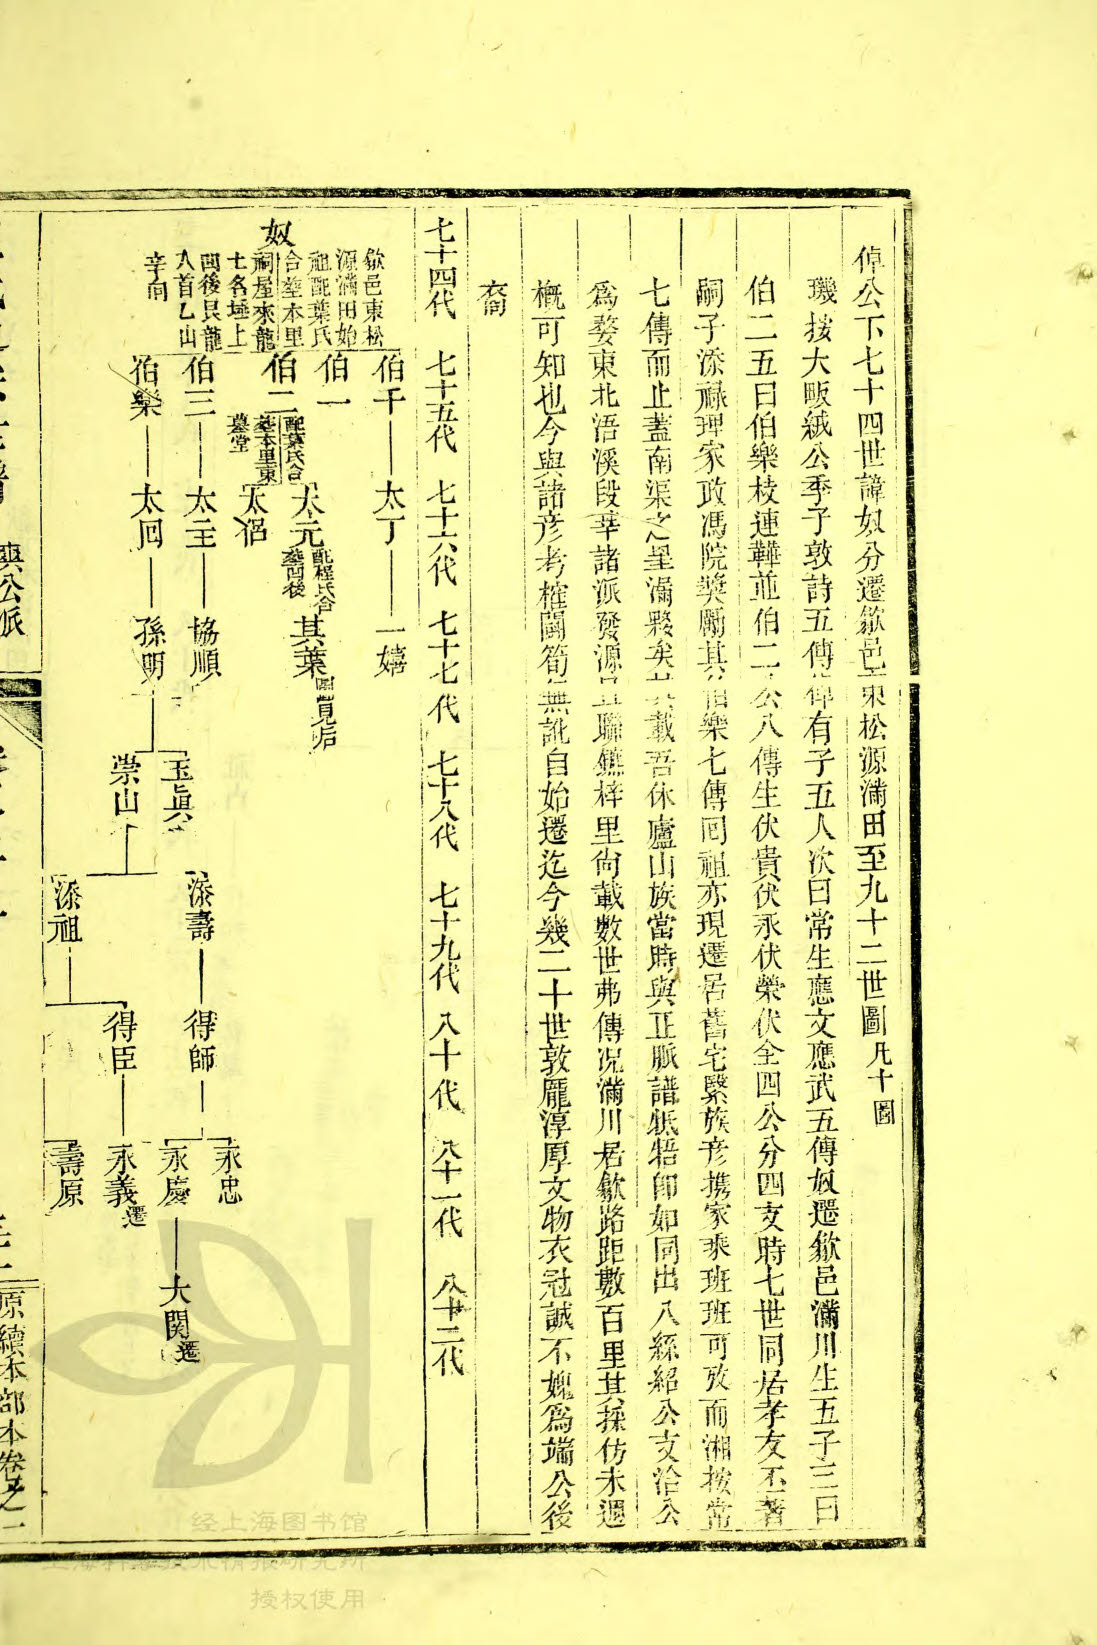 倬公下七十四世諱奴分遷歙邑東松源滿田至九十二世圖凡十圖
璣按大畈絨公季子敦詩五傳倬有子五人次曰常生應文應武五傳奴遷歙邑滿川生五子三曰
伯二五曰伯樂枝連鞾並伯二公八傳生伏貴伏永伏榮伏全四公分四支時七世同居孝友丕著
嗣子添祿理家政馮院獎勵其伯樂七傳囘祖亦現遷居舊宅緊族彥攜家乘班班可攷而湘按常
七傳而止蓋南渠之呈漏夥矣載吾休廬山族當時與正脈譜牴牾卽如同出八絲紹公支洽公
爲婺東北浯溪段莘諸派發源聯鑣梓里尙載數世弗傳況滿川居歙路距數百里其採仿未週
槪可知也今與諸彥考榷闔筍無訛自始遷迄今幾二十世敦龐淳厚文物衣冠誠不媿爲端公後
裔
七十四代 七十五代 七十六代 七十七代 七十八代 七十九代 八十代 八十一代 八十二代
奴
歙邑東松
源滿田始
祖配葉氏
合塟本里
祠屋來龍
土名塘上
囬後艮龍
入首乙山
辛向
伯千 太丁 一嬉
伯一
伯二
配葉氏合
塟本里東
墓堂
太元
配程氏合
塟囬後
其葉
圖見后
太侶
伯三 太主 協順
伯樂 太囘 孫明
玉眞
崇山
添壽 得師 永忠
永慶 大関遷
添祖
得臣 永義遷
壽原
興公派
原續本部本卷之一
经上海图书馆
授权使用